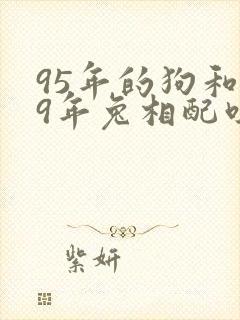 95年的狗和
9年兔相配
紫妍